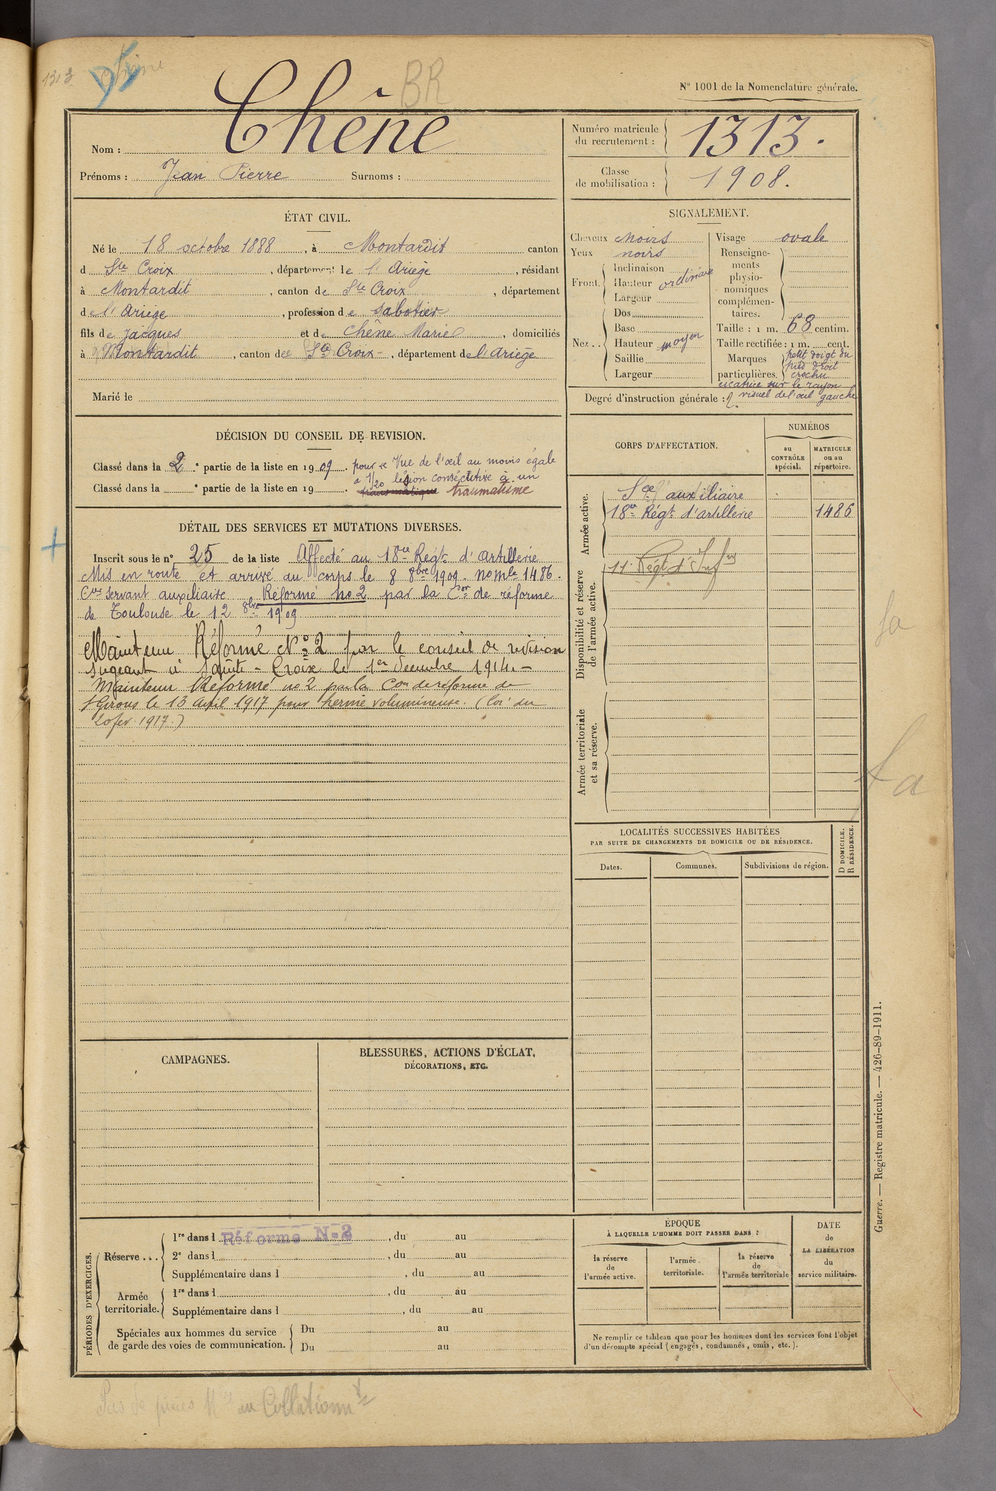 1313
BR
N° 1001 de la Nomenclature générale.
Nom : Chêne
Prénoms : Jean Pierre Surnoms :
Numéro matricule du recrutement : 1313.
Classe de mobilisation : 1908.
ÉTAT CIVIL.
Né le 18 octobre 1888, à Montardit canton
d Ste Croix, département de l'Ariège, résidant
à Montardit, canton de Ste Croix, département
de l'Ariège, profession de sabotier
fils de Jacques et de Chêne Marie, domiciliés
à Montardit, canton de Ste Croix, département de l'Ariège
Marié le
SIGNALEMENT.
Cheveux noirs
Yeux noirs
Front. Inclinaison
Hauteur ordinaire
Largeur
Nez.. Dos
Base
Hauteur moyen
Saillie
Largeur
Visage ovale
Renseignements physionomiques complémentaires.
Taille : 1 m. 68 centim.
Taille rectifiée : 1 m. cent.
Marques particulières. petit doigt du
pied droit
crochu
cicatrice sur le rayon
visuel de l'œil gauche
Degré d'instruction générale : 2
DÉCISION DU CONSEIL DE REVISION.
Classé dans la 2e partie de la liste en 1909. pour Vue de l'œil au moins égale
Classé dans la e partie de la liste en 19 . à 1/20 lésion consécutive à un
traumatisme
DÉTAIL DES SERVICES ET MUTATIONS DIVERSES.
Inscrit sous le n° 25 de la liste Affecté au 18e Régt d'Artillerie
Mis en route et arrivé au corps le 8 8bre 1909. No mle 1486.
Cer servant auxiliaire Réformé no 2 par la Con de réforme
de Toulouse le 12 8bre 1909
Maintenu Réformé No 2 par le conseil de revision
siégeant à Sainte-Croix le 1er Décembre 1914.-
Maintenu Réformé no 2 par la Con de réforme de
St Girons le 13 Avril 1917 pour hernie volumineuse. (loi du
20 fer 1917.)
CORPS D'AFFECTATION.
NUMÉROS
au CONTRÔLE spécial.
MATRICULE ou au répertoire.
Armée active.
Sce auxiliaire
18e Régt d'artillerie 1486
Disponibilité et réserve de l'armée active.
11 Regt d'Infie
Armée territoriale et sa réserve.
fa
fa
LOCALITÉS SUCCESSIVES HABITÉES
PAR SUITE DE CHANGEMENTS DE DOMICILE OU DE RÉSIDENCE.
Dates.
Communes.
Subdivisions de région.
D DOMICILE.
R RÉSIDENCE.
CAMPAGNES.
BLESSURES, ACTIONS D'ÉCLAT,
DÉCORATIONS, ETC.
PÉRIODES D'EXERCICES.
Réserve... 1re dans l Réformé N° 2, du au
2e dans l , du au
Supplémentaire dans l , du au
Armée territoriale. 1re dans l , du au
Supplémentaire dans l , du au
Spéciales aux hommes du service
de garde des voies de communication. Du au
Du au
ÉPOQUE
À LAQUELLE L'HOMME DOIT PASSER DANS :
la réserve de l'armée active.
l'armée territoriale.
la réserve de l'armée territoriale
DATE de LA LIBÉRATION du service militaire.
Ne remplir ce tableau que pour les hommes dont les services font l'objet
d'un décompte spécial (engagés, condamnés, omis, etc.).
Guerre. — Registre matricule. — 426-89-1911.
Pas de pièces